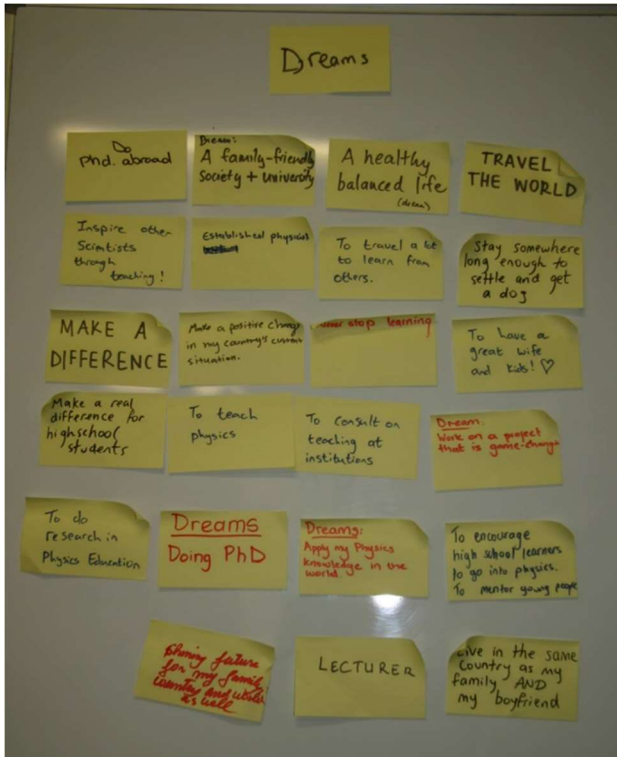 Dreams
Do
Phd. abroad
Dream:
A family-friendly
Society + University
A healthy
balanced life
(dream)
TRAVEL
THE WORLD
Inspire other
Scientists
through
teaching!
Established physicist
To travel a lot
to learn from
others.
Stay somewhere
long enough to
settle and get
a dog
MAKE A
DIFFERENCE
Make a positive change
in my country's current
situation.
never stop learning
To have a
great wife
and kids! ♡
Make a real
difference for
highschool
students
To teach
physics
To consult on
teaching at
institutions
Dream:
Work on a project
that is game-chang
To do
research in
Physics Education
Dreams
Doing PhD
Dreams:
Apply my Physics
knowledge in the
world
To encourage
high school learners
to go into physics.
To mentor young people
Shining future
for my family,
country and world
as well
LECTURER
Live in the same
Country as my
family AND
my boyfriend